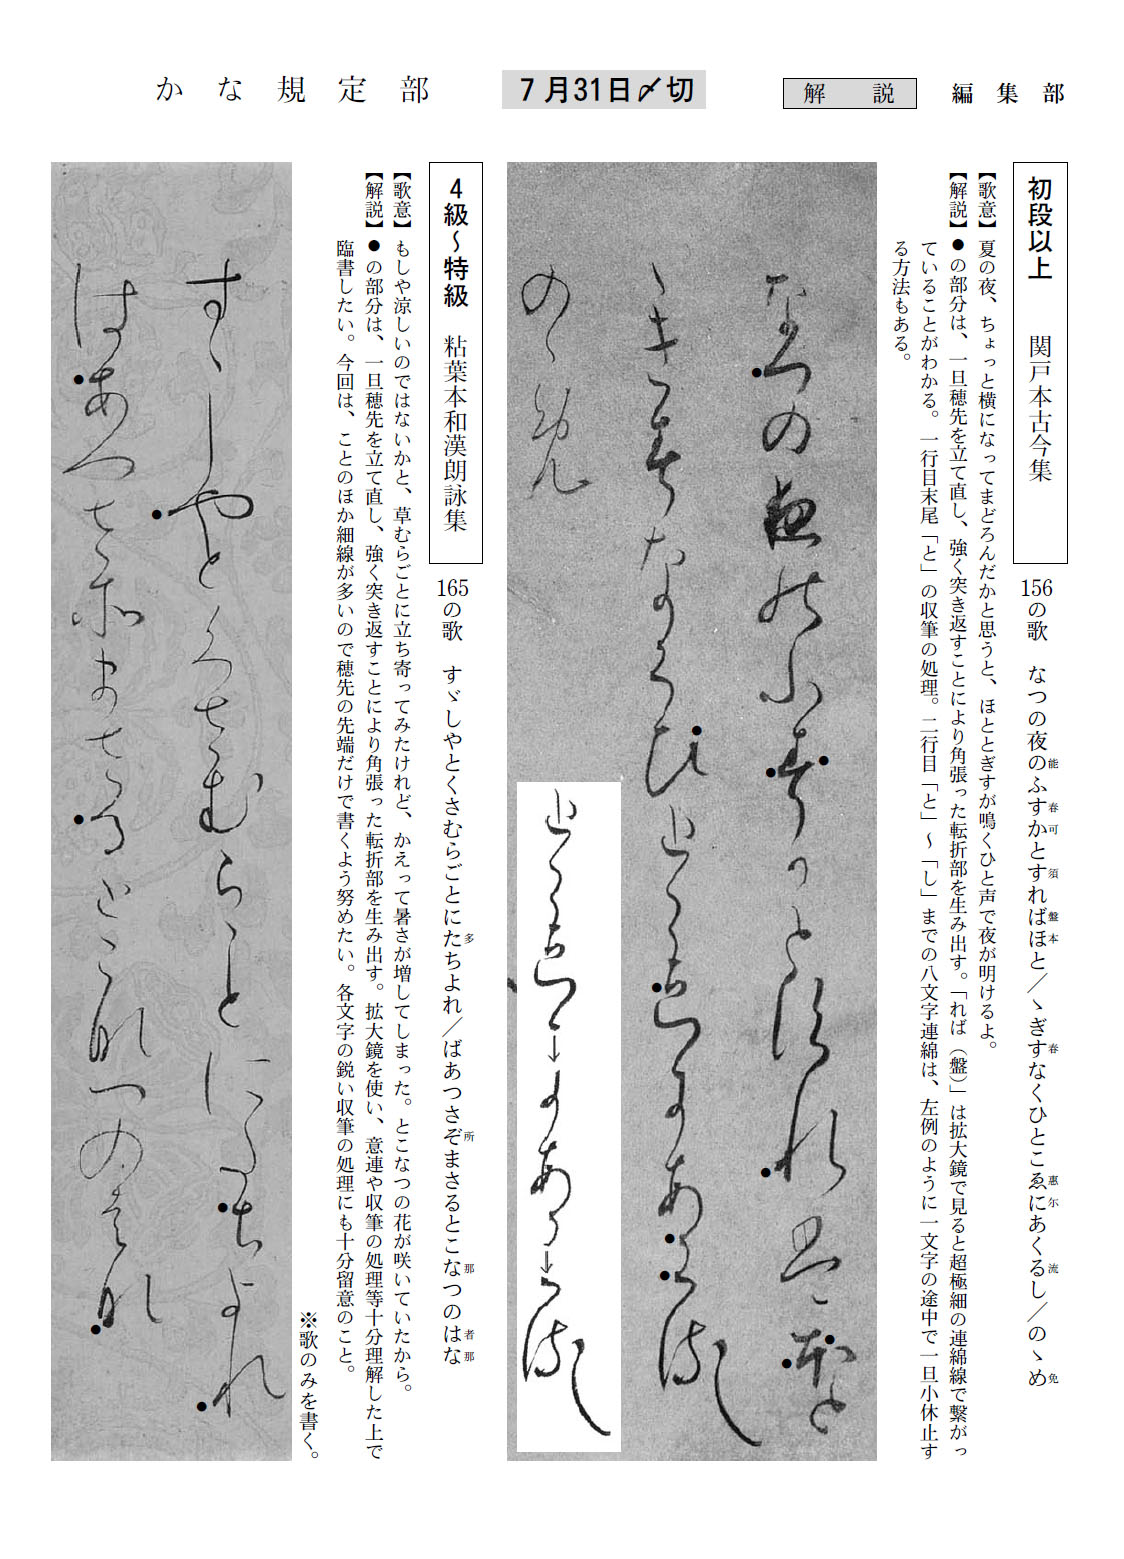 かな規定部
７月31日〆切
解説
編集部
初段以上　関戸本古今集
156の歌　なつの夜のふすかとすればほと／ゝぎすなくひとこゑにあくるし／のゝめ
能　春　可　須　盤　本　春　惠　尓　流　免
【歌意】夏の夜、ちょっと横になってまどろんだかと思うと、ほととぎすが鳴くひと声で夜が明けるよ。
【解説】●の部分は、一旦穂先を立て直し、強く突き返すことにより角張った転折部を生み出す。「れば（盤）」は拡大鏡で見ると超極細の連綿線で繫がっ
ていることがわかる。一行目末尾「と」の収筆の処理。二行目「と」～「し」までの八文字連綿は、左例のように一文字の途中で一旦小休止す
る方法もある。
なつの夜能ふ春可と須れ盤本と
ゝき春なくひとこ惠尓あく流し
のゝ免
とこ惠↓尓あく↓流し
４級～特級　粘葉本和漢朗詠集
165の歌　すゞしやとくさむらごとにたちよれ／ばあつさぞまさるとこなつのはな
多　所　那　者　那
【歌意】もしや涼しいのではないかと、草むらごとに立ち寄ってみたけれど、かえって暑さが増してしまった。とこなつの花が咲いていたから。
【解説】●の部分は、一旦穂先を立て直し、強く突き返すことにより角張った転折部を生み出す。拡大鏡を使い、意連や収筆の処理等十分理解した上で
臨書したい。今回は、ことのほか細線が多いので穂先の先端だけで書くよう努めたい。各文字の鋭い収筆の処理にも十分留意のこと。
※歌のみを書く。
すゝしやとくさむらことに多ちよれ
はあつさ所まさるとこ那つの者那